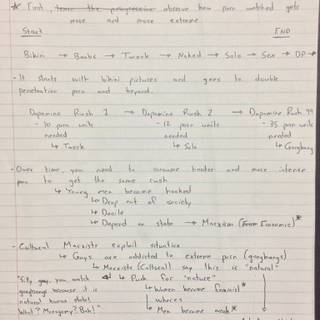 * First, observe how porn watched gets
more and more extreme
Start END
Bikini → Boobs → Twerk → Naked → Solo → Sex → DP →
- It starts with bikini pictures and goes to double
penetration porn and beyond.
Dopamine Rush 1 → Dopamine Rush 2 → Dopamine Rush 99
- 10 porn units - 12 porn units - 35 porn units
needed needed needed
↳ Twerk ↳ Solo ↳ Gangbang
- Over time, you need to consume harder and more intense
porn to get the same rush
↳ Young men become hooked
↳ Drop out of society
↳ Docile
↳ Depend on state → Marxism (Economic)*
- Cultural Marxists exploit situation
↳ Guys are addicted to extreme porn (gangbangs)
↳ Marxists (Cultural) say this is "natural"
you watch ↳ Push for "nature"
gangbangs because it is ↳ Women become feminist*
natural human state! whores
What? Monogamy? Bah!" ↳ Men become weak*